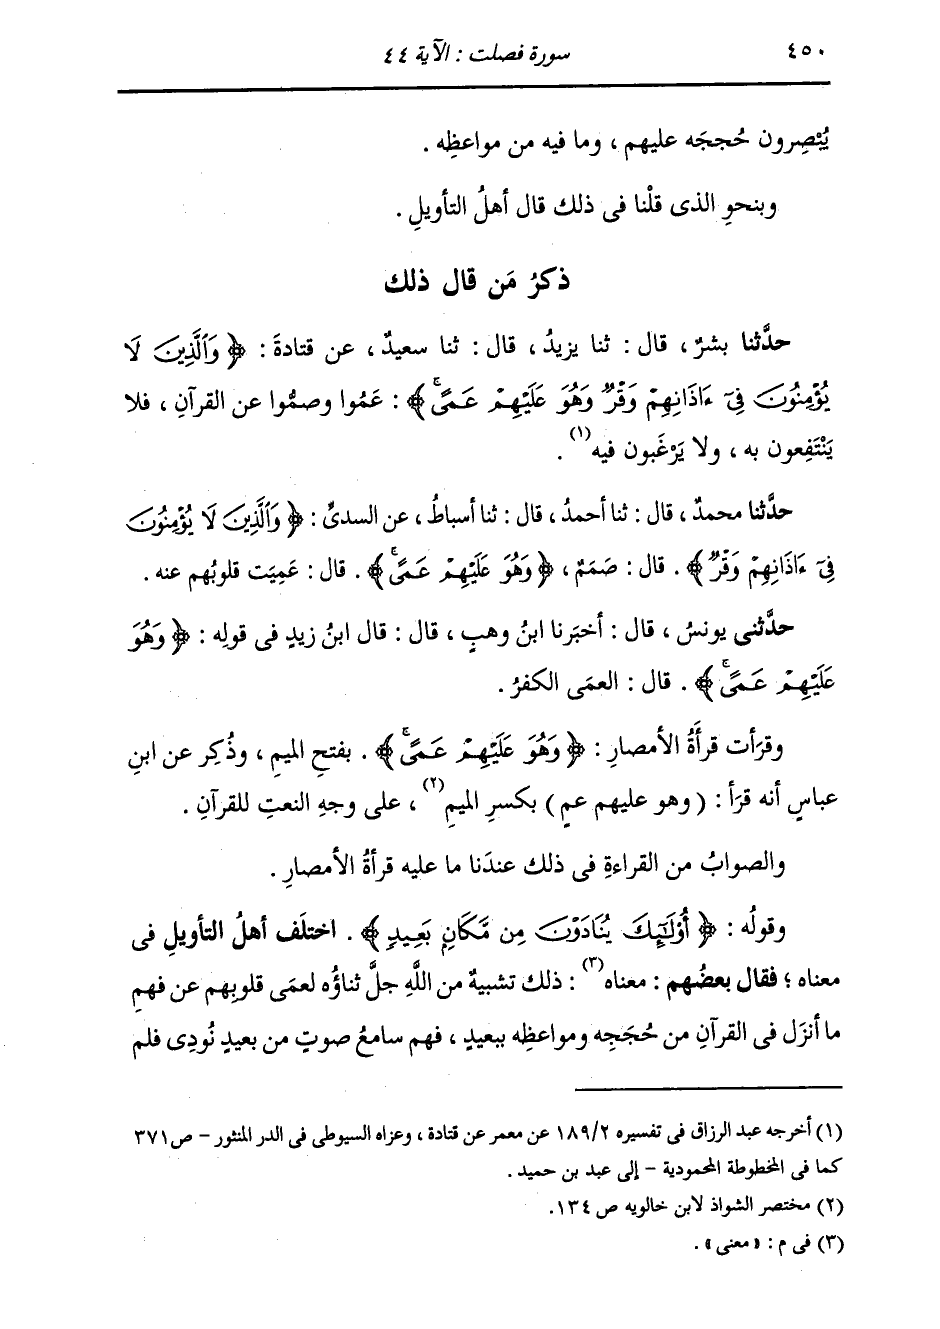 ٤٥٠
سورة فصلت : الآية ٤٤
يُبْصِرون حُججَه عليهم ، وما فيه من مواعظِه .
وبنحوِ الذى قلْنا فى ذلك قال أهلُ التأويلِ .
ذكرُ مَن قال ذلك
حدَّثنا بشرٌ ، قال : ثنا يزيدُ ، قال : ثنا سعيدٌ ، عن قتادةَ : ﴿ وَٱلَّذِينَ لَا
يُؤْمِنُونَ فِىٓ ءَاذَانِهِمْ وَقْرٌ وَهُوَ عَلَيْهِمْ عَمًىۚ ﴾ : عَمُوا وصمُّوا عن القرآنِ ، فلا
يَنْتَفِعون به ، ولا يَرْغَبون فيه(١) .
حدَّثنا محمدٌ ، قال : ثنا أحمدُ ، قال : ثنا أسباطُ ، عن السدىِّ : ﴿ وَٱلَّذِينَ لَا يُؤْمِنُونَ
فِىٓ ءَاذَانِهِمْ وَقْرٌ ﴾ . قال : صَمَمٌ ، ﴿ وَهُوَ عَلَيْهِمْ عَمًىۚ ﴾ . قال : عَمِيَت قلوبُهم عنه .
حدَّثنى يونسُ ، قال : أخبَرنا ابنُ وهبٍ ، قال : قال ابنُ زيدٍ فى قولِه : ﴿ وَهُوَ
عَلَيْهِمْ عَمًىۚ ﴾ . قال : العمَى الكفرُ .
وقرَأت قرأَةُ الأمصارِ : ﴿ وَهُوَ عَلَيْهِمْ عَمًىۚ ﴾ . بفتحِ الميمِ ، وذُكِر عن ابنِ
عباسٍ أنه قرَأ : ( وهو عليهم عمٍ ) بكسرِ الميمِ(٢) ، على وجهِ النعتِ للقرآنِ .
والصوابُ من القراءةِ فى ذلك عندَنا ما عليه قرأةُ الأمصارِ .
وقولُه : ﴿ أُوْلَٰٓئِكَ يُنَادَوْنَ مِن مَّكَانٍۭ بَعِيدٍ ﴾ . اختلَف أهلُ التأويلِ فى
معناه ؛ فقال بعضُهم : معناه(٣) : ذلك تشبيهٌ من اللَّهِ جلَّ ثناؤُه لعمَى قلوبِهم عن فهمِ
ما أنزَل فى القرآنِ من حُجَجِه ومواعظِه ببعيدٍ ، فهم سامعُ صوتٍ من بعيدٍ نُودِى فلم
(١) أخرجه عبد الرزاق فى تفسيره ١٨٩/٢ عن معمر عن قتادة ، وعزاه السيوطى فى الدر المنثور - ص٣٧١
كما فى المخطوطة المحمودية - إلى عبد بن حميد .
(٢) مختصر الشواذ لابن خالويه ص ١٣٤.
(٣) فى م : « معنى » .